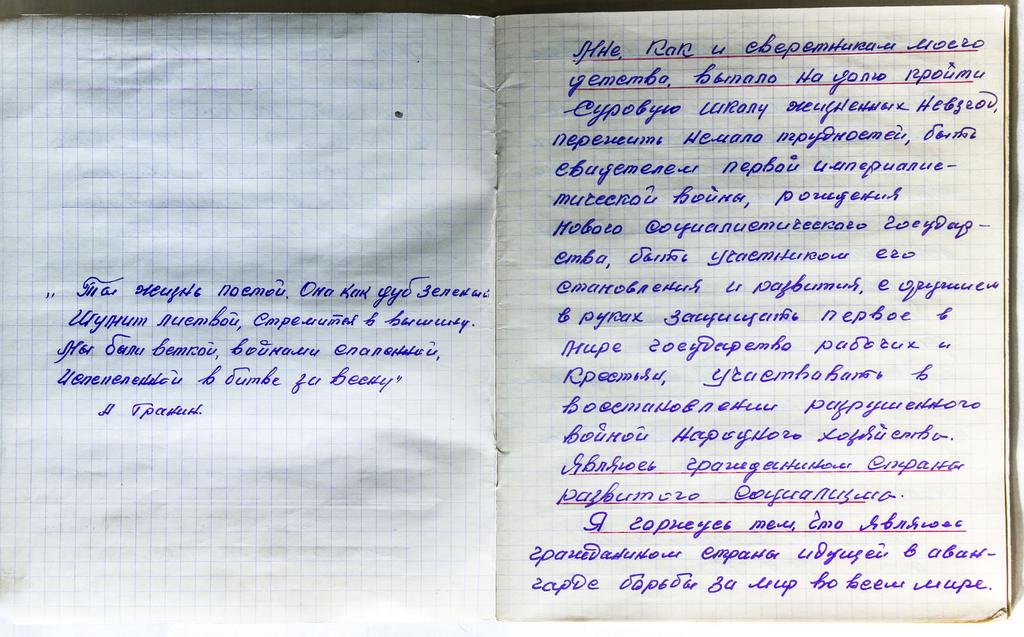 „Ты жизнь постой. Она как дуб зеленый
Шумит листвой, стремится в вышину.
Мы были веткой, войнами спаленной,
Испепеленной в битве за весну"
А Гранин.
Мне, как и сверстникам моего
детства, выпало на долю пройти
суровую школу жизненных невзгод,
пережить немало трудностей, быть
свидетелем первой империалис-
тической войны, рождения
нового социалистического государ-
ства, быть участником его
становления и развития, с оружием
в руках защищать первое в
мире государство рабочих и
крестьян, участвавать в
восстановлении разрушенного
войной народного хозяйства.
Являюсь гражданином страны
развитого социализма.
Я горжусь тем, что являюсь
гражданином страны идущей в аван-
гарде борьбы за мир во всем мире.